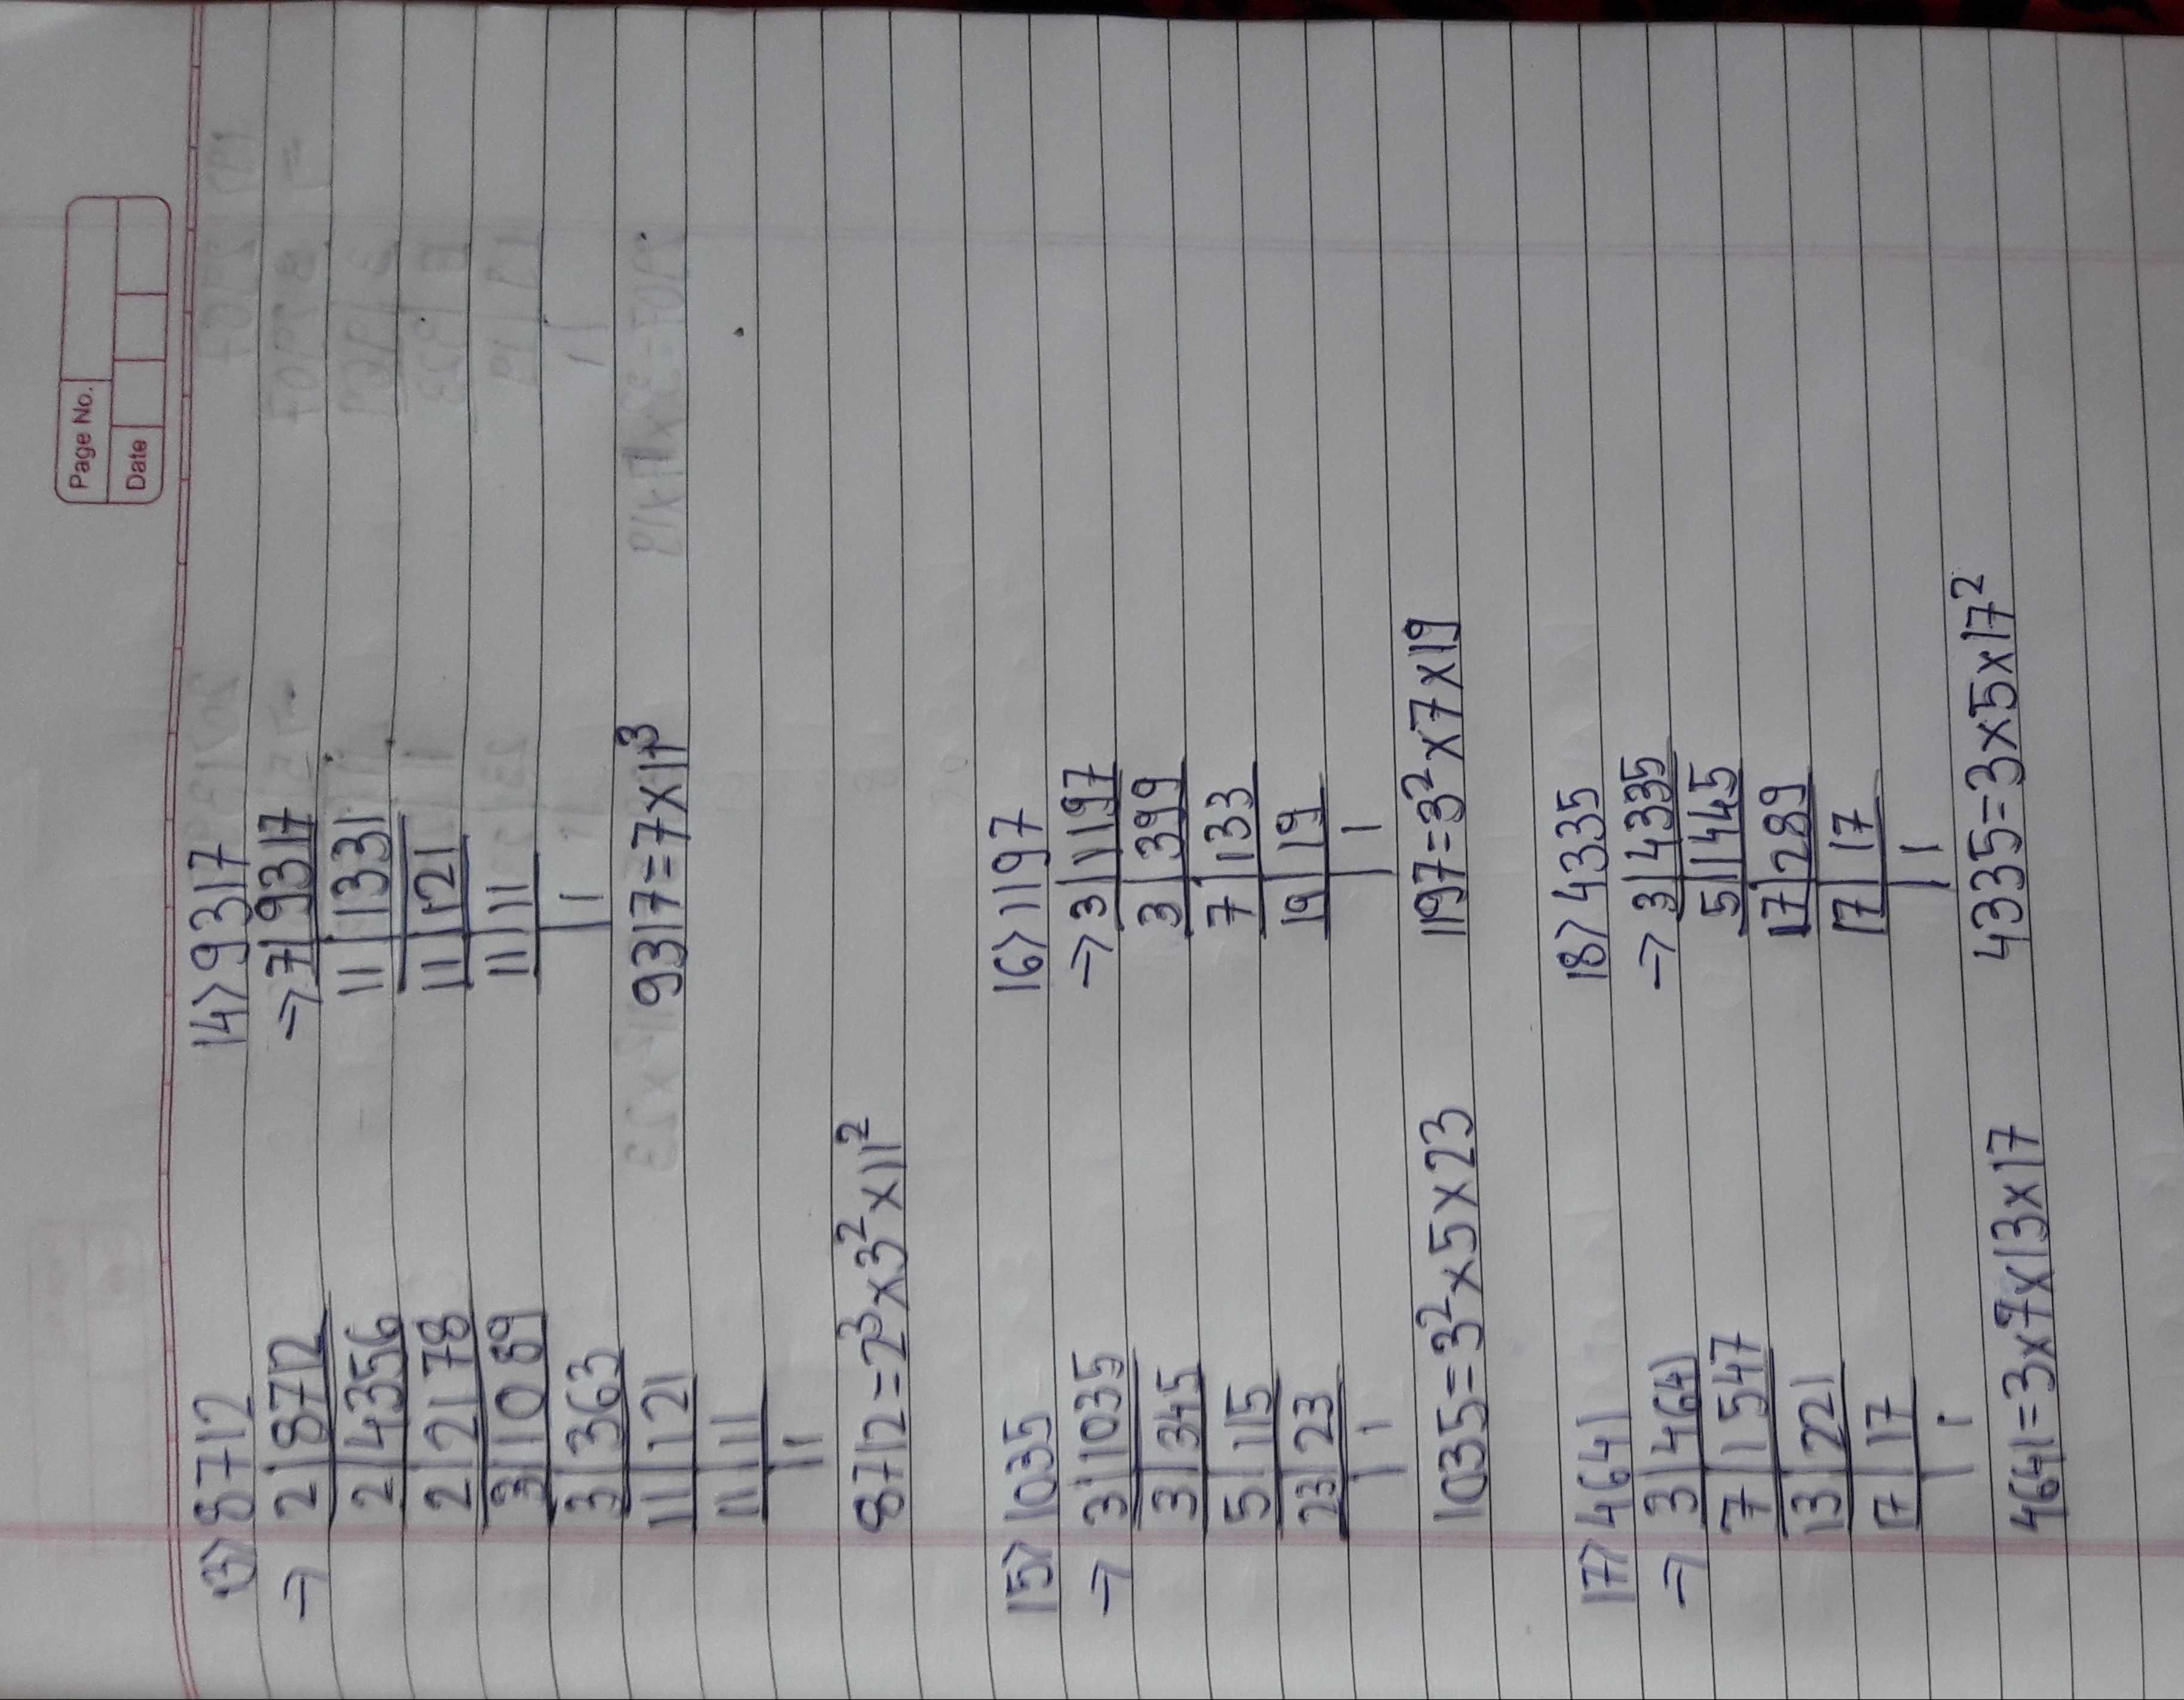 Page No.
Date
13> 8712
⇒ 2|8712
2|4356
2|2178
3|1089
3|363
11|121
11|11
|1
8712=2³×3²×11²
14> 9317
⇒ 7|9317
11|1331
11|121
11|11
|1
9317=7×11³
15> 1035
⇒ 3|1035
3|345
5|115
23|23
|1
1035=3²×5×23
16> 1197
⇒ 3|1197
3|399
7|133
19|19
|1
1197=3²×7×19
17> 4641
⇒ 3|4641
7|1547
13|221
17|17
|1
4641=3×7×13×17
18> 4335
⇒ 3|4335
5|1445
17|289
17|17
|1
4335=3×5×17²